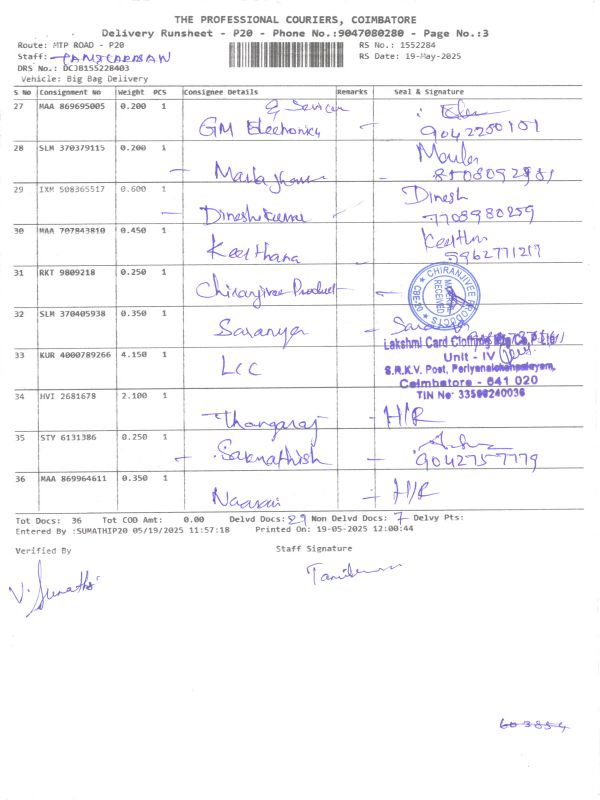 THE PROFESSIONAL COURIERS, COIMBATORE
Delivery Runsheet - P20 - Phone No.:9047080280 - Page No.:3
Route: MTP ROAD - P20 RS No.: 1552284
Staff: RS Date: 19-May-2025
DRS No.: DCJB155228403
Vehicle: Big Bag Delivery
S No Consignment No Weight PCS Consignee Details Remarks Seal & Signature
27 MAA 869695005 0.200 1 GM Electronics & Services 9042250101
28 SLM 370379115 0.200 1
29 IXM 508365517 0.600 1 Dineshkumar Dinesh 7708980259
30 MAA 707843810 0.450 1 Keerthana 5962771217
31 RKT 9809218 0.250 1 Chiranjivee Product CHIRANJIVEE PRODUCTS RECEIVED
32 SLM 370405938 0.350 1 Saranya
33 KUR 4000789266 4.150 1 LCC Lakshmi Card Clothing Mfg Co. P. Ltd
Unit - IV
S.R.K.V. Post, Periyanaickenpalayam,
Coimbatore - 641 020
TIN No: 33500240036
34 HVI 2681678 2.100 1 Thangaraj - H/R
35 STY 6131386 0.250 1 9042757779
36 MAA 869964611 0.350 1 - H/R
Tot Docs: 36 Tot COD Amt: 0.00 Delvd Docs: 29 Non Delvd Docs: 7 Delvy Pts:
Entered By :SUMATHIP20 05/19/2025 11:57:18 Printed On: 19-05-2025 12:00:44
Verified By Staff Signature
V. Sumathi
603854